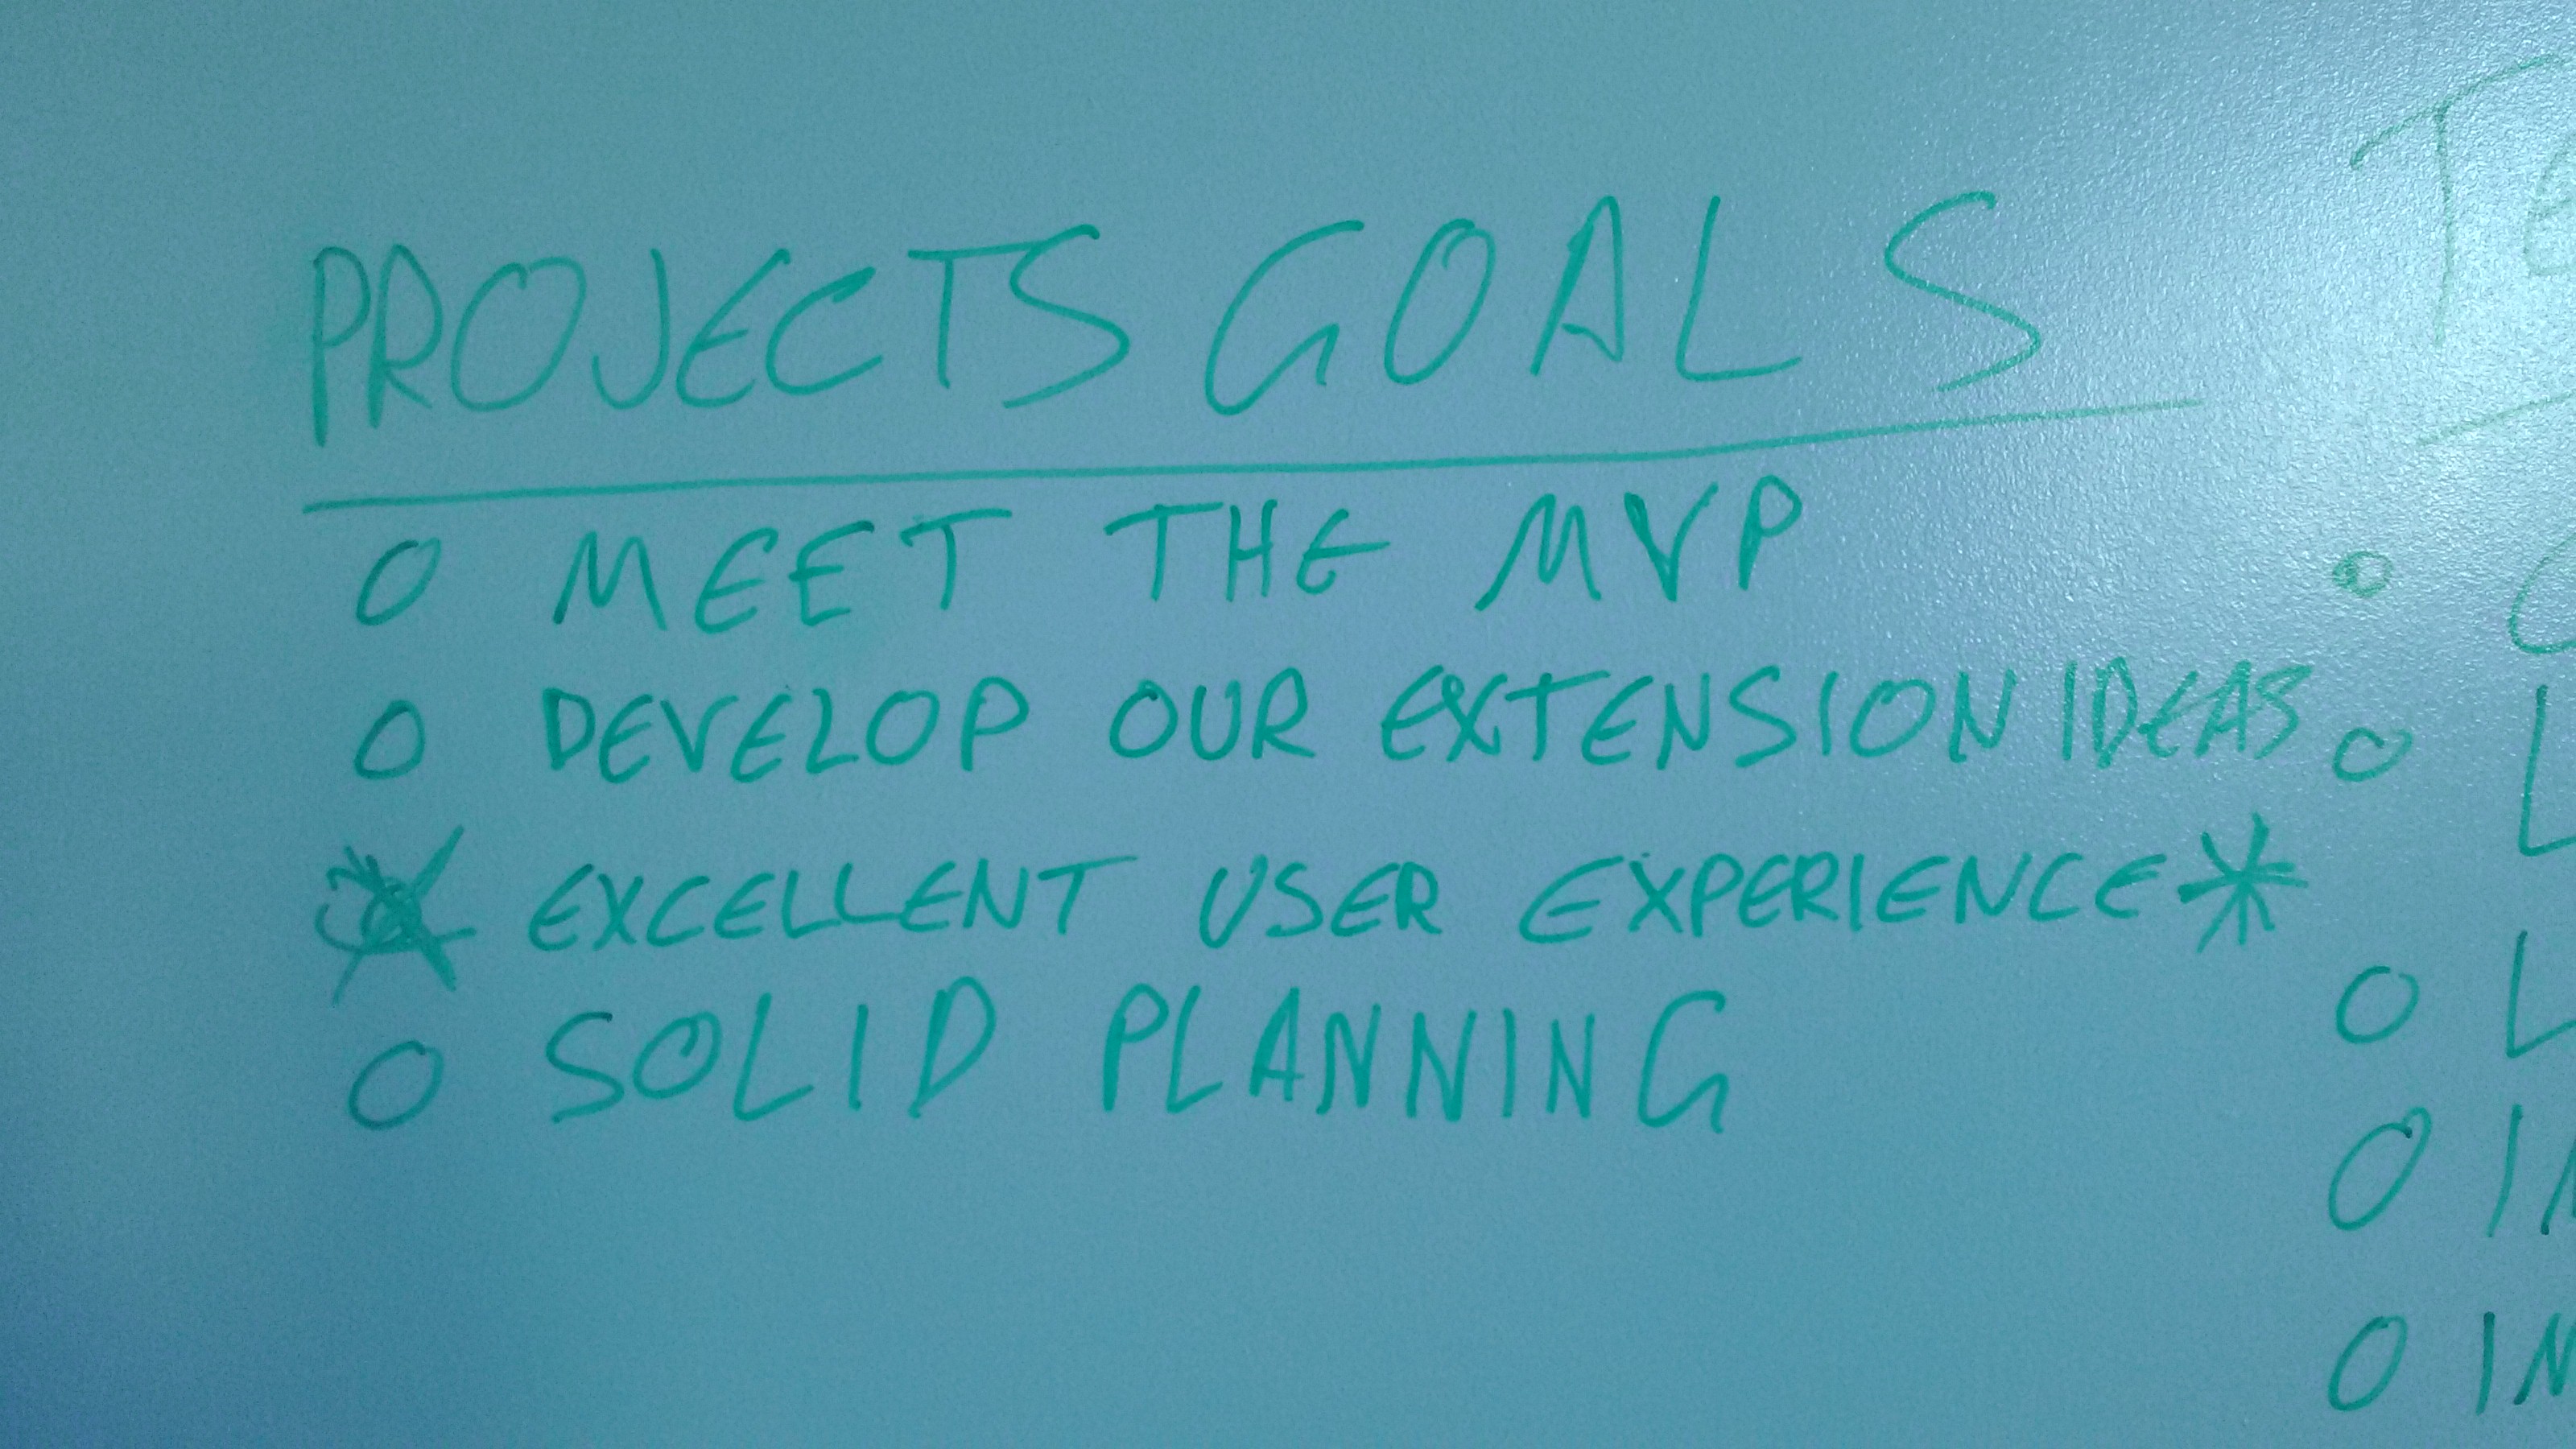 PROJECTS GOALS
O MEET THE MVP
O DEVELOP OUR EXTENSION IDEAS
* EXCELLENT USER EXPERIENCE *
O SOLID PLANNING